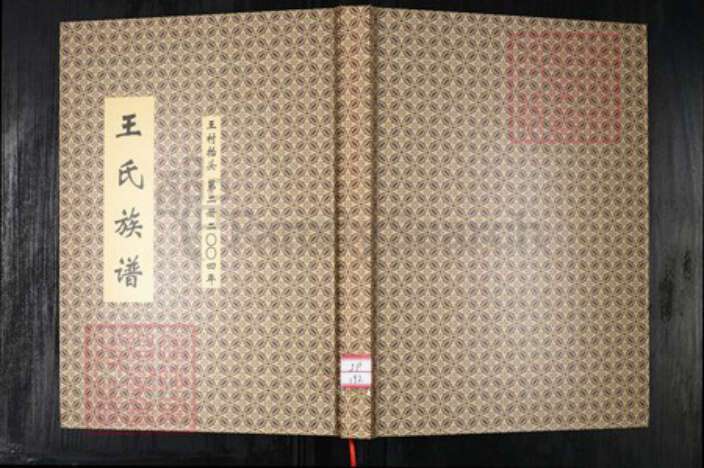 王氏族谱
王村拾头 第二册 二〇〇四年
JP
192